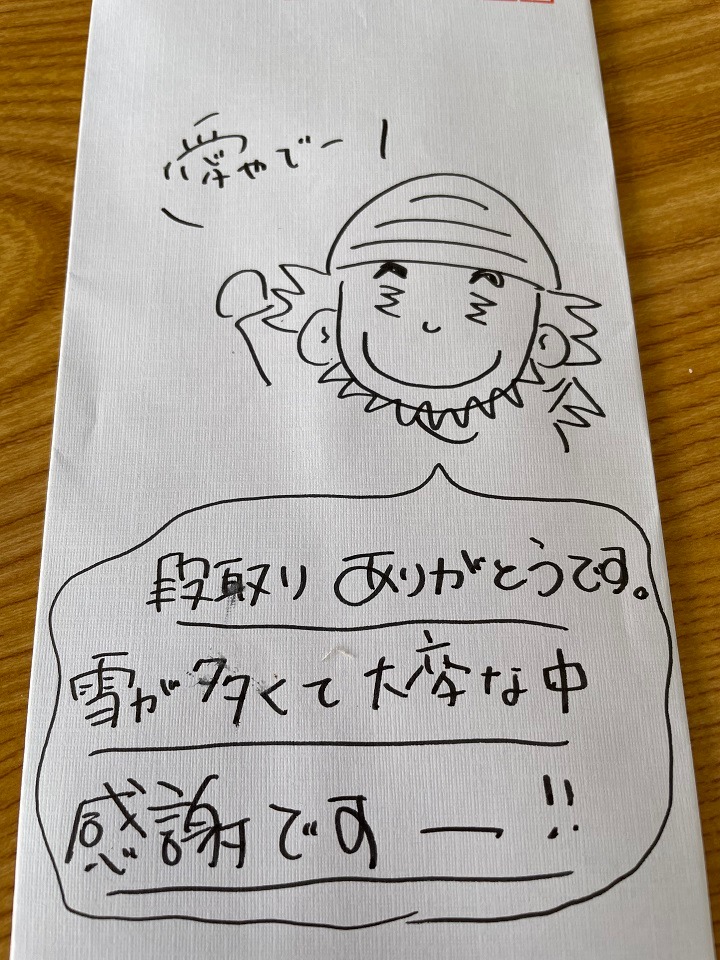 愛やでー!
段取り ありがとうです。
雪が多くて大変な中
感謝ですー!!